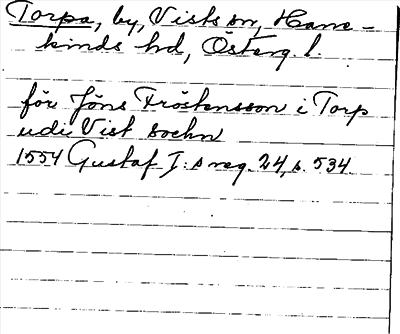 Torpa, by, Vists sn, Hane-
kinds hd, Österg. l.
för Jöns Tröstensson i Torp
udi Vist sochn
1554 Gustaf I:s reg. 24, s. 534